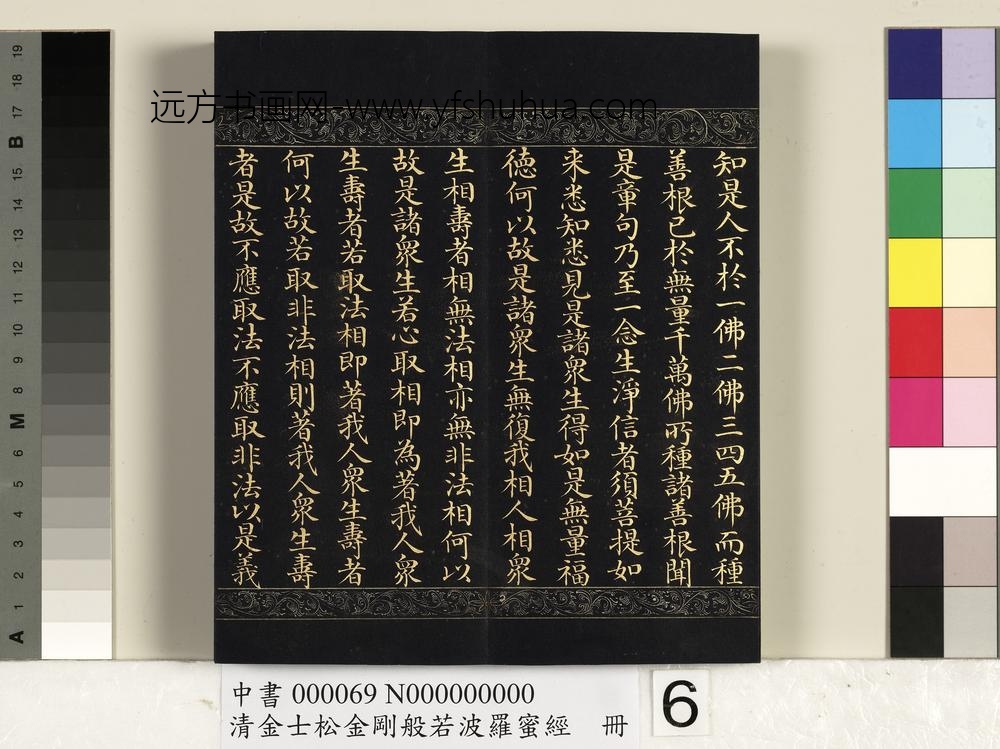 远方书画网-www.yfshuhua.com
知是人不於一佛二佛三四五佛而種
善根已於無量千萬佛所種諸善根聞
是章句乃至一念生淨信者須菩提如
来悉知悉見是諸衆生得如是無量福
德何以故是諸衆生無復我相人相衆
生相壽者相無法相亦無非法相何以
故是諸衆生若心取相即為著我人衆
生壽者若取法相即著我人衆生壽者
何以故若取非法相則著我人衆生壽
者是故不應取法不應取非法以是義
中書 000069 N000000000
清金士松金剛般若波羅蜜經 冊
6
19
18
17
B
15
14
13
12
11
10
9
8
M
6
5
4
3
2
1
A